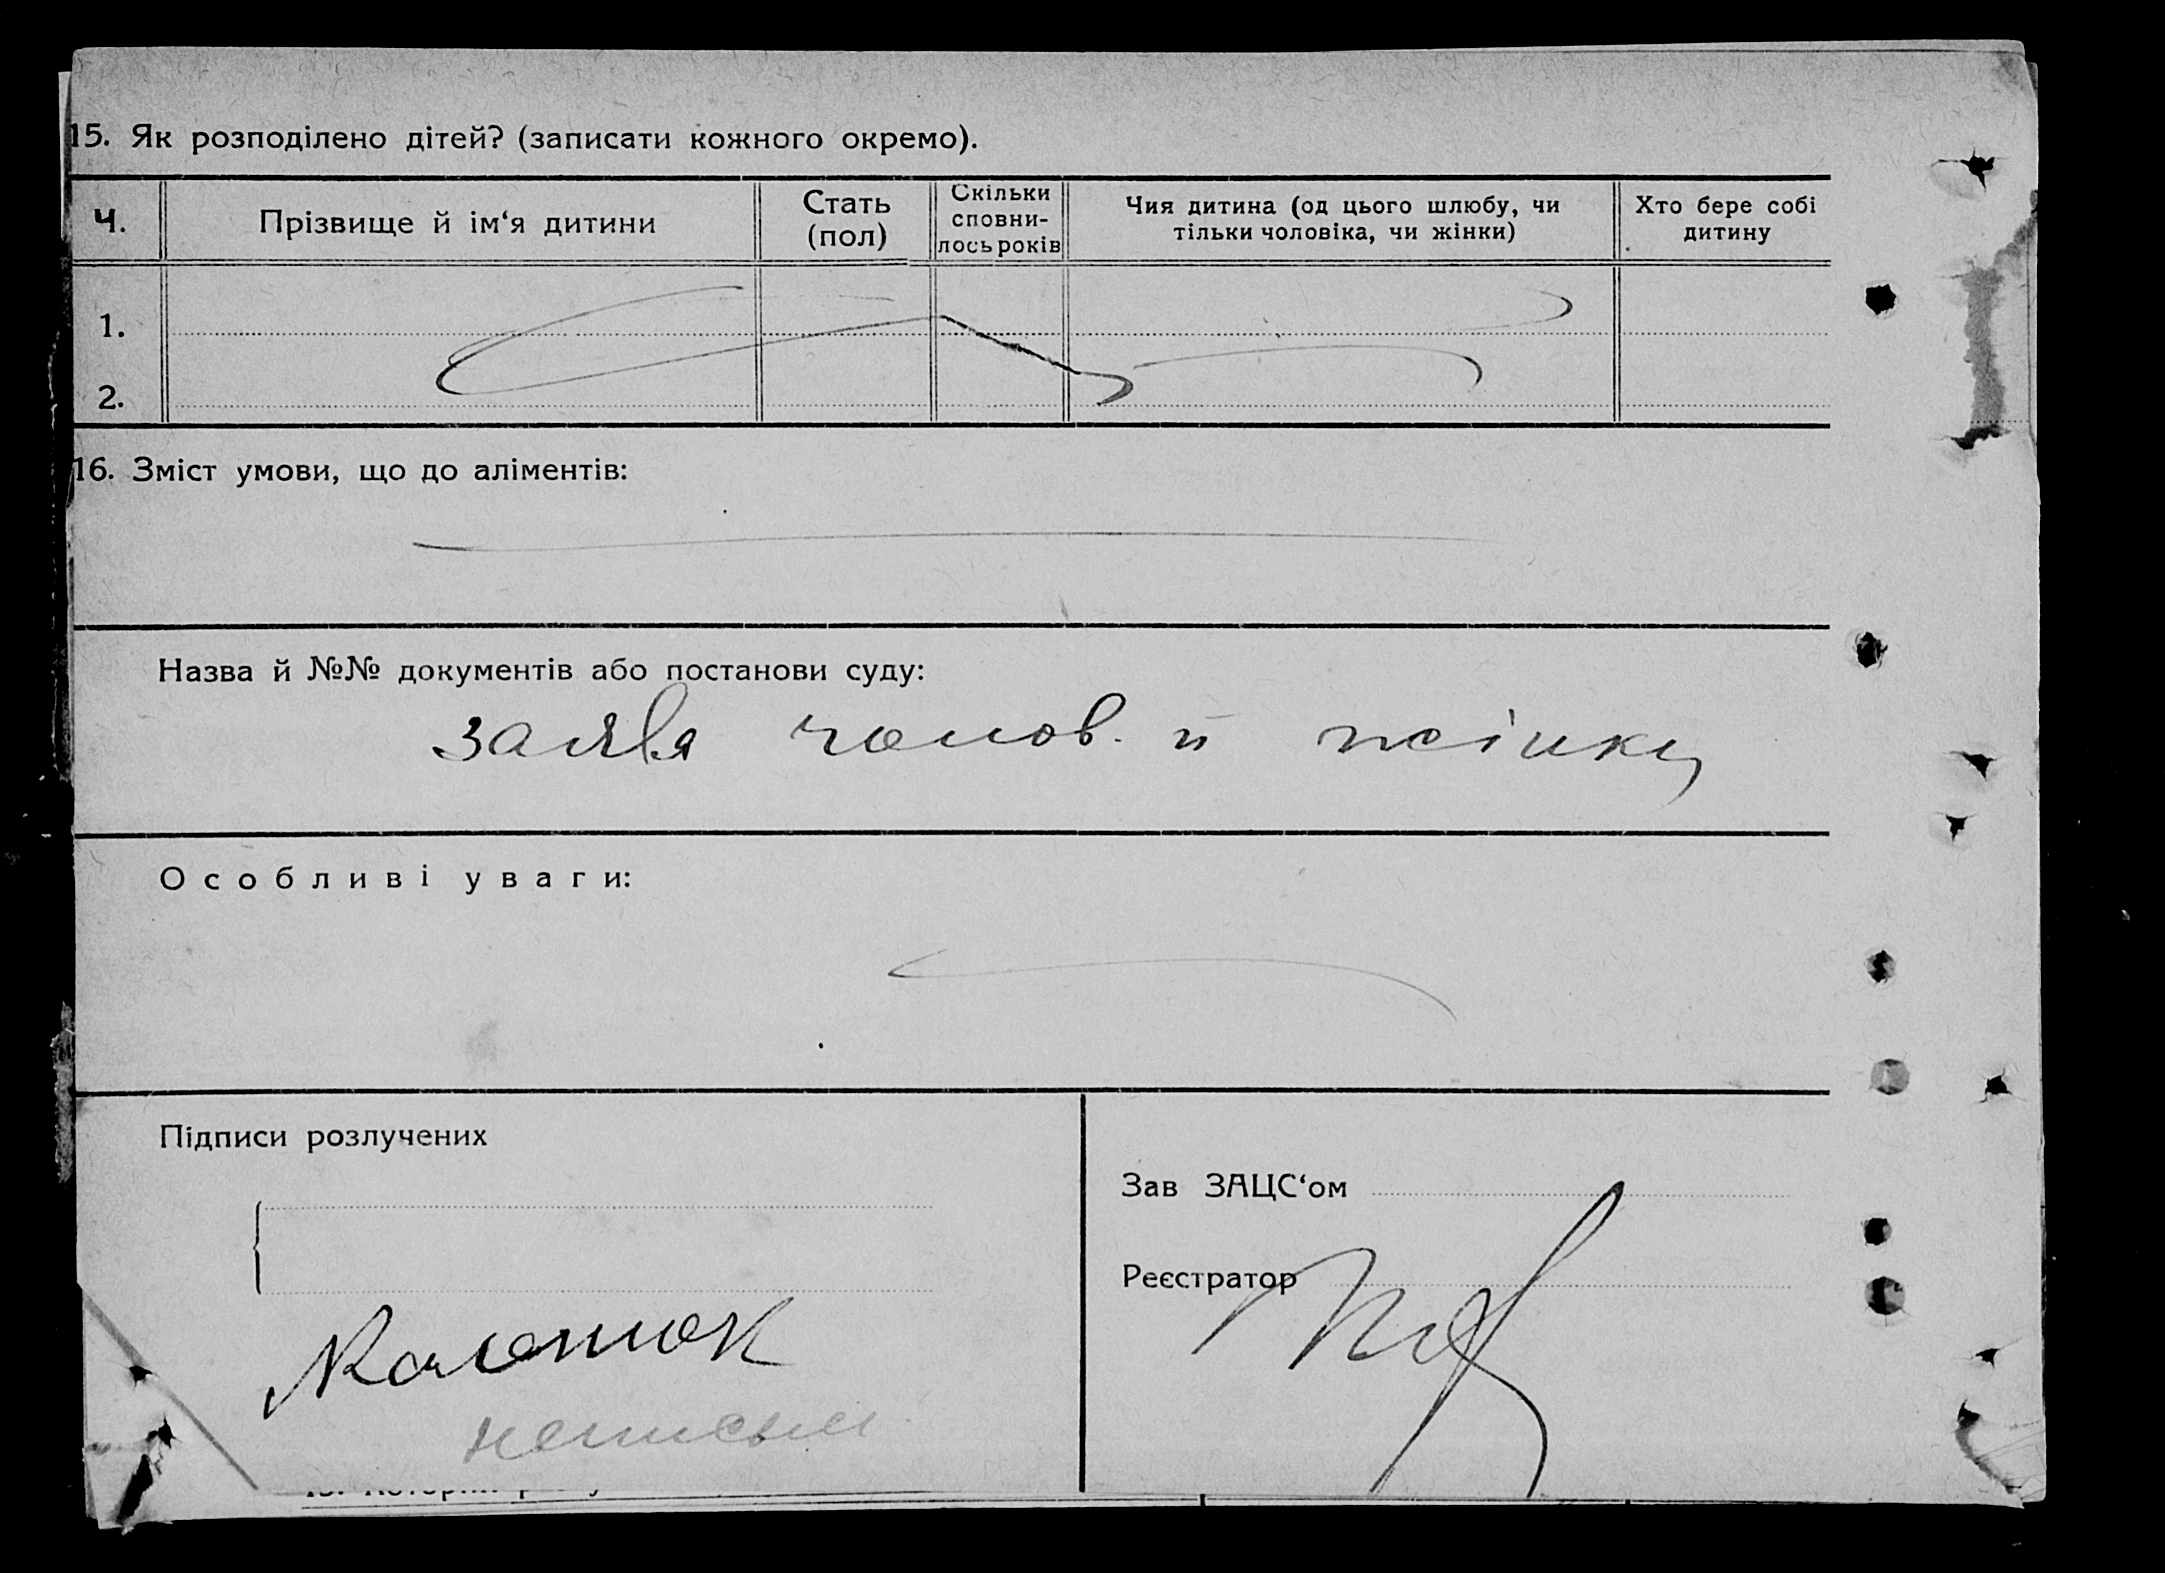 15. Як розподілено дітей? (записати кожного окремо).
Ч.
Прізвище й ім‘я дитини
Стать
(пол)
Скільки
сповни-
лось років
Чия дитина (од цього шлюбу, чи
тільки чоловіка, чи жінки)
Хто бере собі
дитину
1.
2.
16. Зміст умови, що до аліментів:
Назва й №№ документів або постанови суду:
заява чолов. й жінки
Особливі уваги:
Підписи розлучених
Зав ЗАЦС‘ом
Реєстратор
неписьм